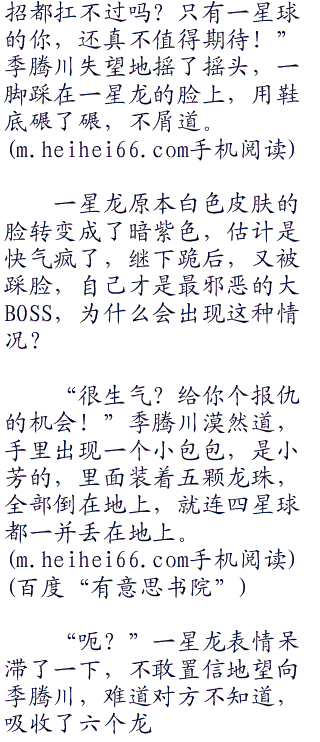 招都扛不过吗？只有一星球
的你，还真不值得期待！”
季腾川失望地摇了摇头，一
脚踩在一星龙的脸上，用鞋
底碾了碾，不屑道。
(m.heihei66.com手机阅读)
一星龙原本白色皮肤的
脸转变成了暗紫色，估计是
快气疯了，继下跪后，又被
踩脸，自己才是最邪恶的大
BOSS，为什么会出现这种情
况？
“很生气？给你个报仇
的机会！”季腾川漠然道，
手里出现一个小包包，是小
芳的，里面装着五颗龙珠，
全部倒在地上，就连四星球
都一并丢在地上。
(m.heihei66.com手机阅读)
(百度“有意思书院”)
“呃？”一星龙表情呆
滞了一下，不敢置信地望向
季腾川，难道对方不知道，
吸收了六个龙